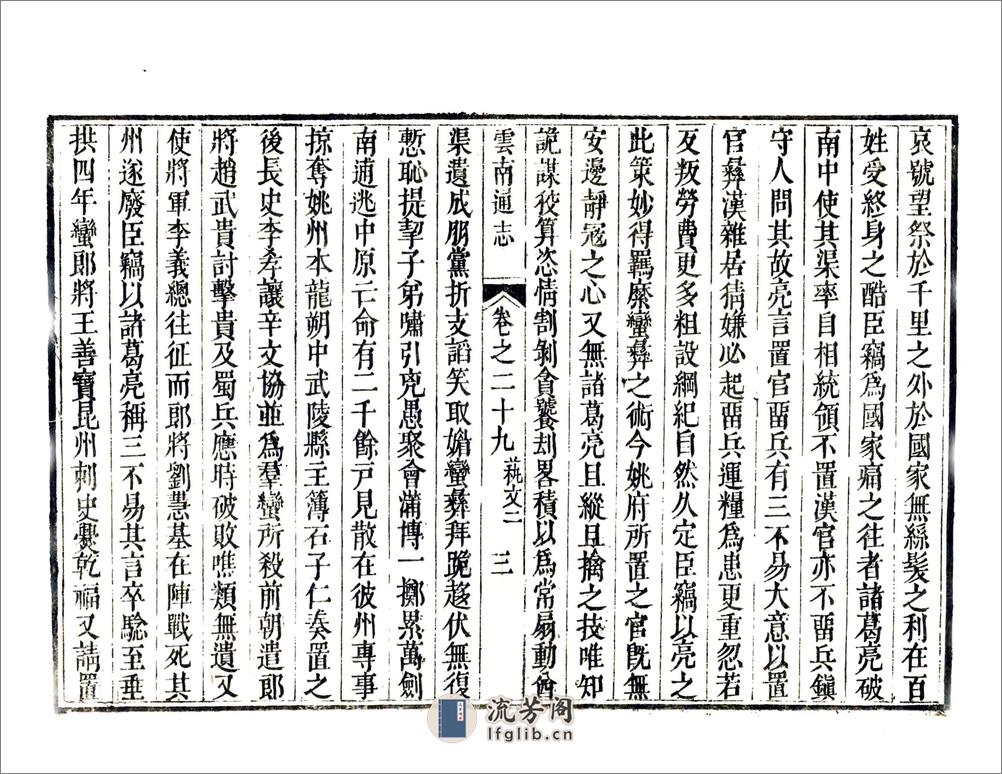 哀號望祭於千里之外於國家無絲髮之利在百
姓受終身之酷臣竊爲國家痛之往者諸葛亮破
南中使其渠率自相統領不置漢官亦不畱兵鎭
守人問其故亮言置官畱兵有三不易大意以置
官彝漢雜居猜嫌必起畱兵運糧爲患更重忽若
反叛勞費更多粗設綱紀自然久定臣竊以亮之
此策妙得羈縻蠻彝之術今姚府所置之官旣無
安邊靜寇之心又無諸葛亮且縱且擒之技唯知
詭謀狡算恣情割剝貪饕刼畧積以爲常扇動酋
雲南通志 卷之二十九 蓺文二 三
渠遺成朋黨折支謟笑取媚蠻彝拜跪趍伏無復
慙恥提挈子弟嘯引兇愚聚會蒲博一擲累萬劍
南逋逃中原亡命有二千餘戸見散在彼州專事
掠奪姚州本龍朔中武陵縣主簿石子仁奏置之
後長史李孝讓辛文協並爲羣蠻所殺前朝遣郎
將趙武貴討擊貴及蜀兵應時破敗噍類無遺又
使將軍李義總往征而郎將劉惠基在陣戰死其
州遂廢臣竊以諸葛亮稱三不易其言卒驗至垂
拱四年蠻郎將王善寶昆州刺史爨乾福又請置
流芳阁
lfglib.cn